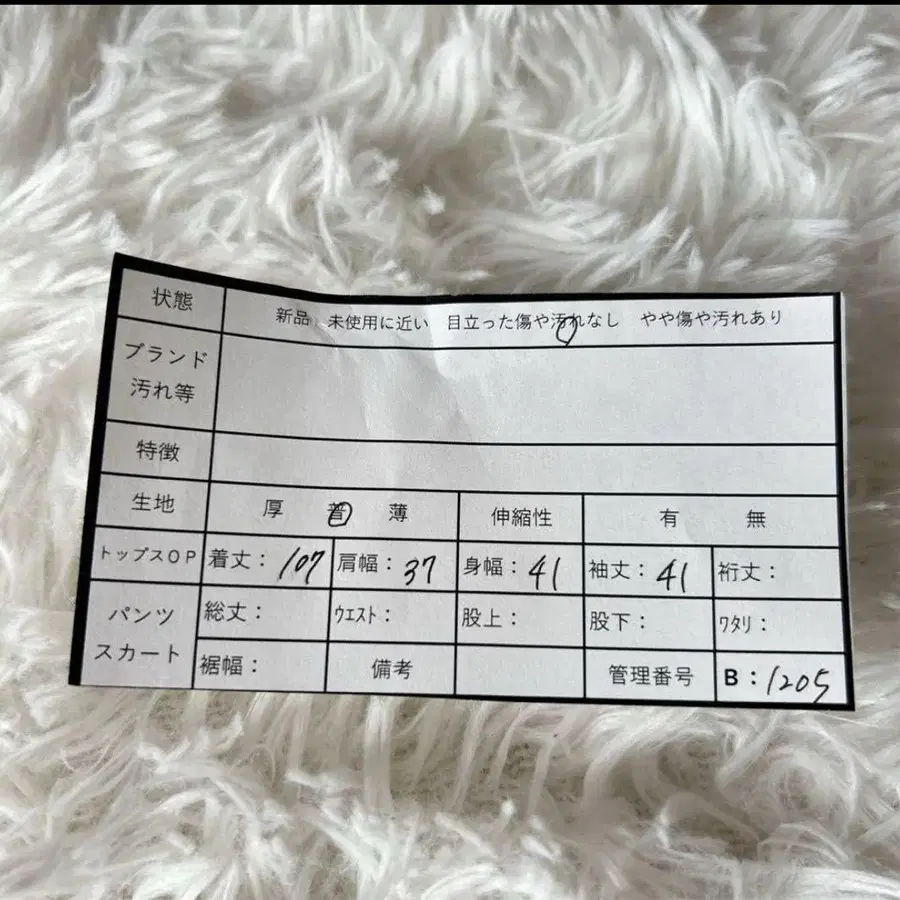 状態 新品 未使用に近い 目立った傷や汚れなし やや傷や汚れあり
ブランド
汚れ等
特徴
生地 厚 普 薄 伸縮性 有 無
トップスOP 着丈: 107 肩幅: 37 身幅: 41 袖丈: 41 裄丈:
パンツ
スカート
総丈: ウエスト: 股上: 股下: ワタリ:
裾幅: 備考 管理番号 B: 1205